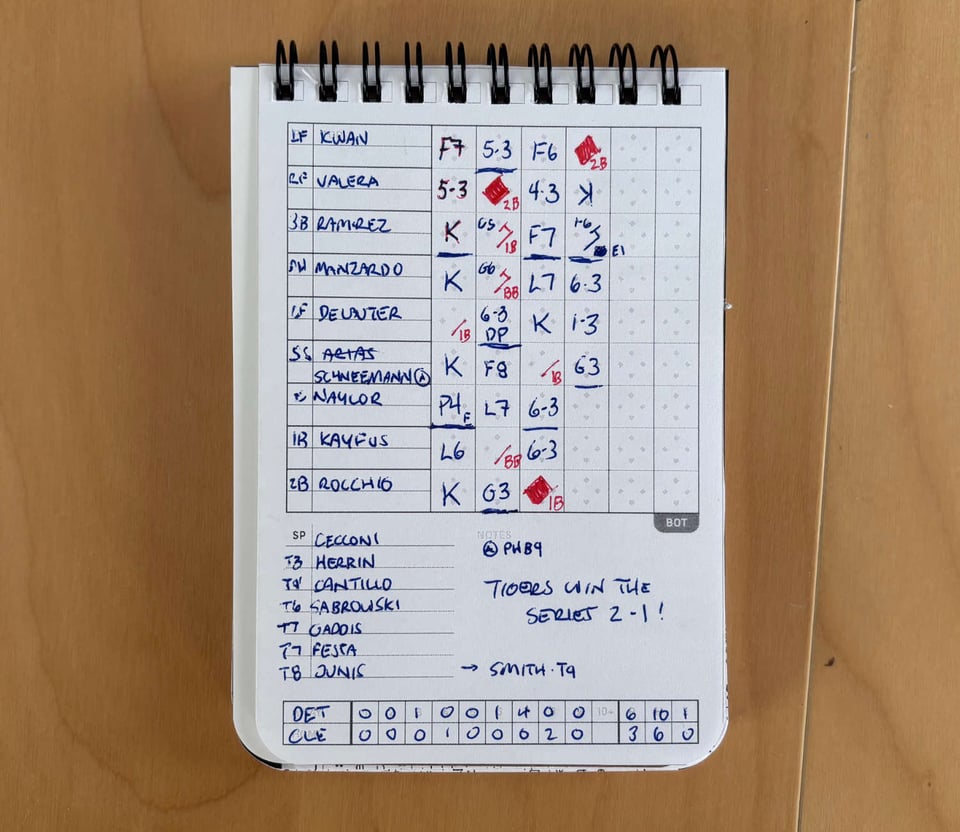 LF KWAN F7 5-3 F6 2B
RF VALERA 5-3 2B 4-3 ꓘ
3B RAMIREZ K G5 1B F7 1-6 E1
MANZARDO K G6 BB L7 6-3
DELAUTER 1B 6-3 DP K 1-3
SS ARIAS
SCHNEEMANN Ⓐ K F8 1B G3
NAYLOR P4 F L7 6-3
1B KAYFUS L6 BB 6-3
2B ROCCHIO K G3 1B
BOT
SP CECCONI NOTES
T3 HERRIN Ⓐ PH B9
T4 CANTILLO TIGERS WIN THE
T6 SABROWSKI SERIES 2-1!
T7 GADDIS
T7 FESTA
T8 JUNIS → SMITH T9
DET 0 0 1 0 0 1 4 0 0 10+ 6 10 1
CLE 0 0 0 1 0 0 0 2 0 3 6 0